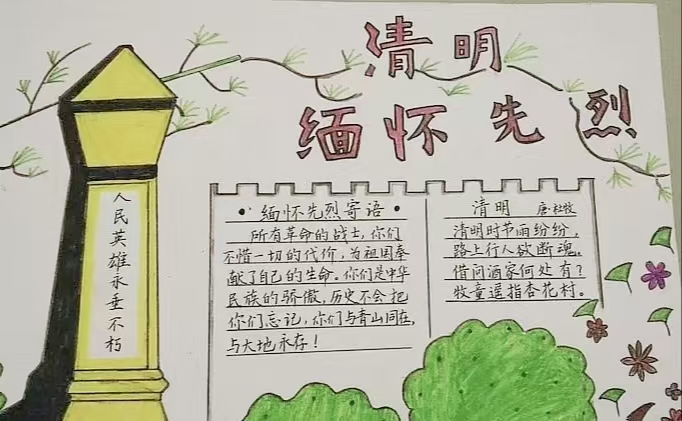 清明
缅怀先烈
人民英雄永垂不朽
·缅怀先烈寄语·
所有革命的战士,你们
不惜一切的代价,为祖国奉
献了自己的生命。你们是中华
民族的骄傲,历史不会把
你们忘记,你们与青山同在,
与大地永存!
清明 唐·杜牧
清明时节雨纷纷,
路上行人欲断魂。
借问酒家何处有?
牧童遥指杏花村。